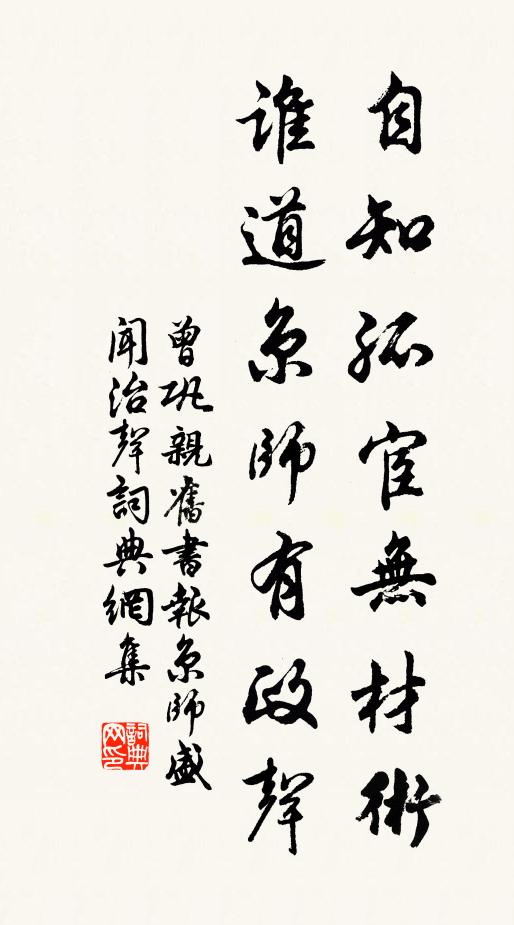 自知孤宦無材術
誰道京師有政聲
曾巩親舊書報京師盛
聞治聲詞典網集
詞典
网印